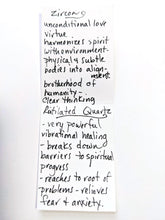 Zircon
unconditional love
virtue.
harmonizes spirit
with environment-
physical & subtle
bodies into align-
ment
brotherhood of
humanity-.
clear thinking
Rutilated Quartz
- very powerful
vibrational healing
- breaks down
barriers to spiritual
progress
- reaches to root of
problems - relieves
fear & anxiety.